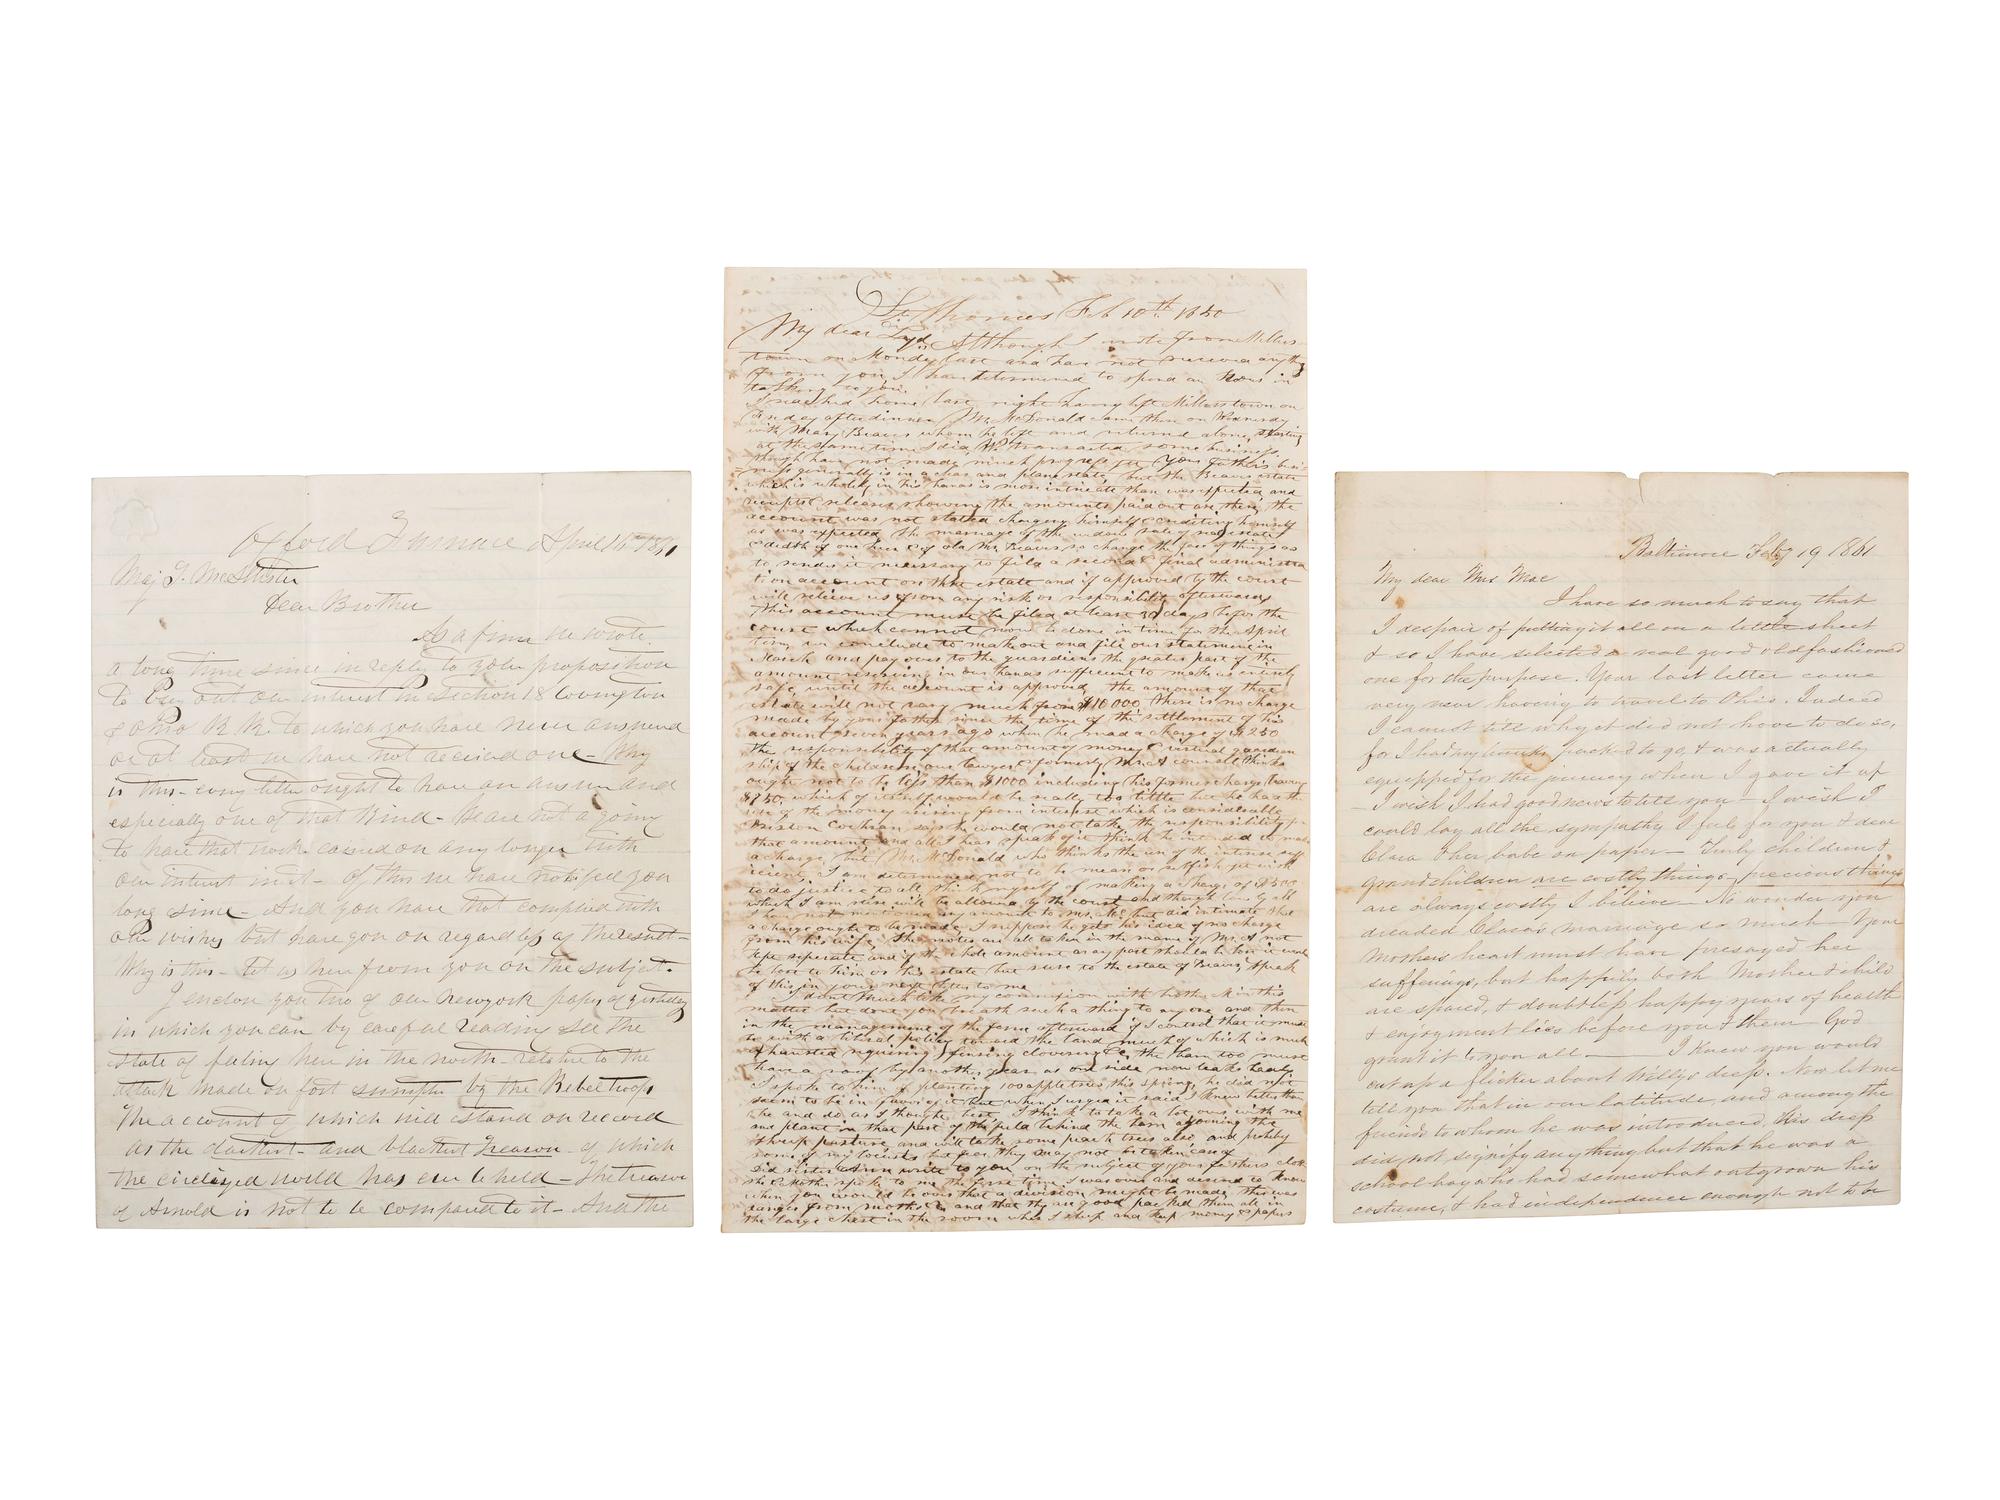 Oxford Furnace April 16th 1861
Maj T. McAllister
Dear Brother
As a firm we wrote
a long time since in reply to your proposition
to buy out our interest in Section 18 Covington
& Ohio R R. to which you have never answered
or at least we have not received one - Why
is this - every letter ought to have an answer and
especially one of that kind - We are not a going
to have that work carried on any longer with
our interest in it - Of this we have notified you
long since - And you have not complied with
our wishes but have gon on regardless of the result -
Why is this - let us hear from you on the subject.
I enclose you two of our Newyork papers of yesterday
in which you can by careful reading see the
state of feeling here in the north - relative to the
attack made on fort sumpter by the Rebel troops
the account of which will stand on record
as the darkest - and blackest treason - of which
the civilized world has ever beheld - The treason
of Arnold is not to be compared to it - And the
St Thomas Feb 10th 1850
My dear Although I wrote from Millers
town on Monday last and has not received any thing
from you I has determined to spend an hour in
talking to you.
I reached home last night having left Millerstown on
Friday after dinner Mr McDonald came there on Wednesday
with Mary Beaver whom he left and returned above, starting
at the same time I did, We transacted some business,
though have not made much progress yet Your fathers busi
ness generally is in a clear and plain state, but the Beaver estate
which is wholely in his hands is more intricate than was expected, and
receipts releases showing the amounts paid out are there, the
account was not stated charging himself & crediting himself
as was expected The marriage of the widow sale of real estate
& death of one heir & of old Mr Beaver so change the face of things as
to render it necessary to file a second & final administra
tion account on the estate and if approved by the court
will relieve us from any risk or responsibility afterwards
This account must be filed at least 30 days before the
court which cannot now be done in time for the April
term, we conclude to make out and file our statement in
March and pay over to the guardians the greater part of the
amount reserving in our hands sufficient to make us entirely
safe, until the account is approved the amount of that
estate will not vary much from $10 000, there is no charge
made by your father since the time of the settlement of his
account seven years ago when he made a charge of $250
the responsibility of that amount of money & virtual guardian
ship of the children, our lawyer & formerly Mr A's counsel thinks
ought not to be less than $1000 including his former charge, leaving
$750, which of itself would be really too little but he has the
use of the money arising from interest which is considerable
Preston Cochran says he would not take the responsibility for
that amount and all I has speak of it think he intended to make
a charge, but Mr McDonald who thinks the use of the interest suf
ficient, I am determined not to be mean or selfish yet wish
to do justice to all think myself of making a charge of $500
which I am sure will be allowed by the court and though
I have not mentioned any amount to Mr Mc but did intimate that
a charge ought to be made, I suppose he gets his idea of no charge
from his wife, The notes are all taken in the name of Mr A not
kept seperate and if the whole amount or any part should be lost it would
be loss to him or his estate but sure to the estate of Beaver, Speak
of this in your next letter to me
I dont much like my connexion with both in this
matter but dont you breath such a thing to any one and then
in the management of the farm afterward if I control that it must
be with a liberal policy toward the land much of which is much
exhausted requiring fencing clovering &c, the barn too must
have a roof by another year, as one side now leaks badly
I spoke to him of planting 100 apple trees this spring, he did not
seem to be in favor of it but when I urged it said I knew better than
he and do as I thought best, I think to take a lot over with me
and plant in that part of the field behind the barn adjoining the
sheep pasture and will take some peach trees also, and probably
some of my locusts but fear they may not be taken care of
Did sister Ann write to you on the subject of your fathers cloth
she & Mother spoke to me the first time I was over and desired to know
when you would be over that a division might be made, this was
ranges from moths &c and that they are good packed them all in
the large chest in the room where I sleep and keep money & papers
Baltimore Feby 19 1861
My dear Mrs Mac
I have so much to say that
I despair of putting it all on a little sheet
& so I have selected a real good oldfashioned
one for the purpose. Your last letter came
very near having to travel to Ohio. Indeed
I cannot tell why it did not have to do so,
for I had my trunks packed to go, & was actually
equipped for the journey when I gave it up
- I wish I had good news to tell you - I wish I
could lay all the sympathy I feel for you & dear
Clara & her babe on paper - Truly children &
grandchildren are costly things - precious things
are always costly I believe - No wonder you
dreaded Clara's marriage so much - Your
Mothers heart must have presaged her
sufferings, but happily both Mother & child
are spared, & doubtless happy years of health
& enjoyment lies before you & them - God
grant it to you all - I knew you would
cut up a flicker about Willys dress. Now let me
tell you that in our latitude, and among the
friends to whom he was introduced, His dress
did not signify any thing but that he was a
school boy who had somewhat outgrown his
costume, & had independence enough not to be